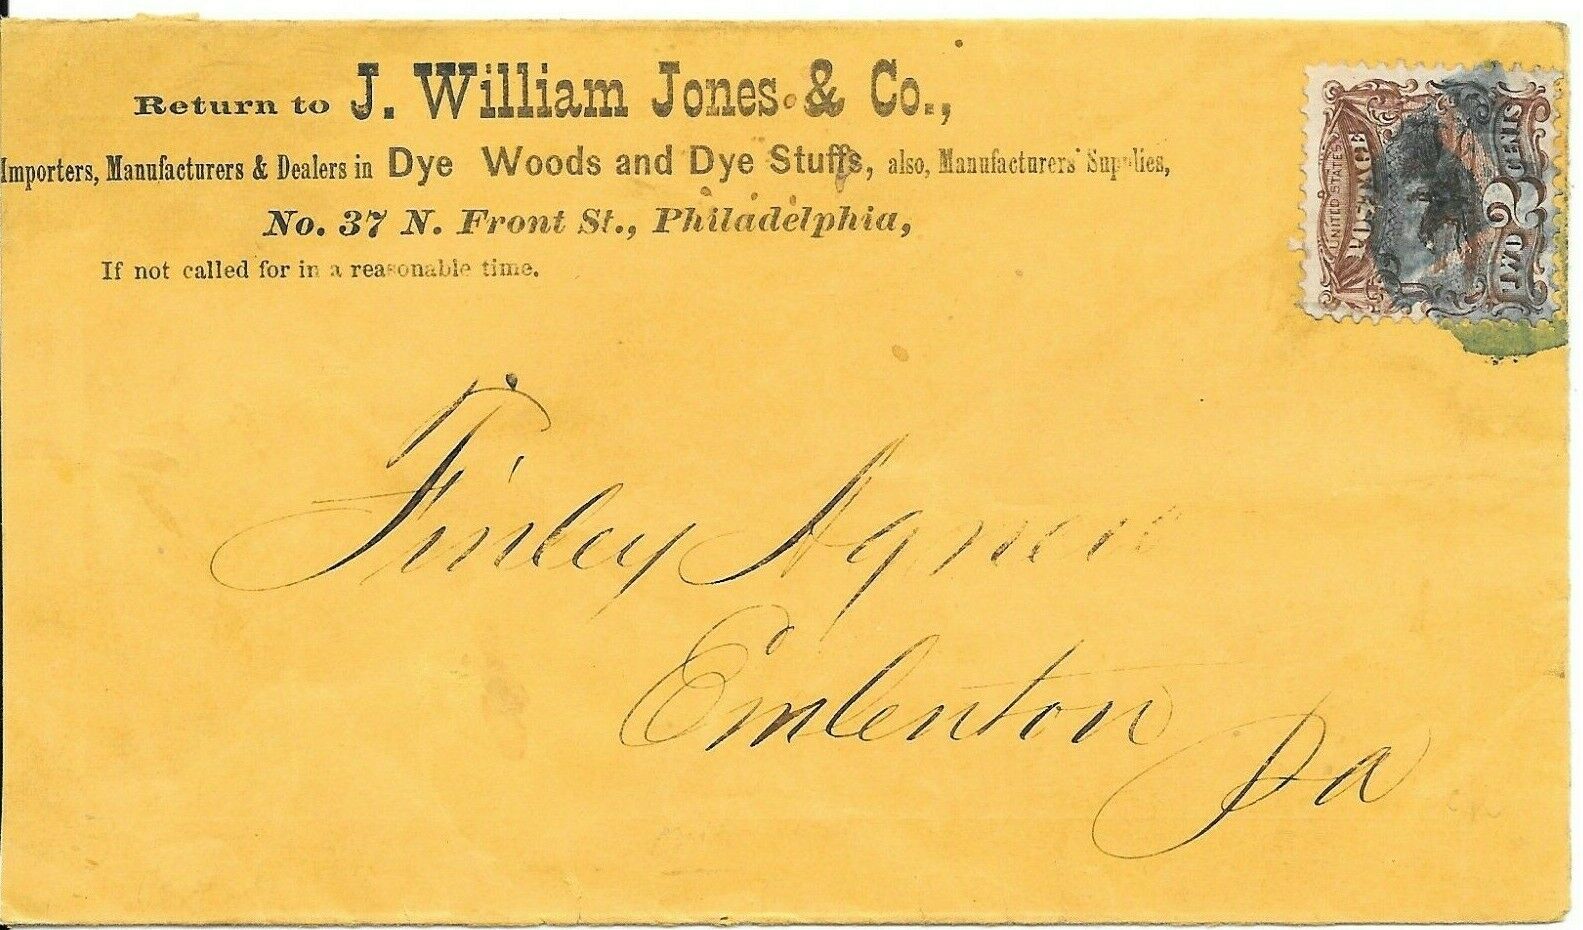 Return to J. William Jones & Co.,
Importers, Manufacturers & Dealers in Dye Woods and Dye Stuffs, also, Manufacturers' Supplies,
No. 37 N. Front St., Philadelphia,
If not called for in a reasonable time.
UNITED STATES
POSTAGE
TWO 2 CENTS
Finley Agnew
Emlenton
Pa